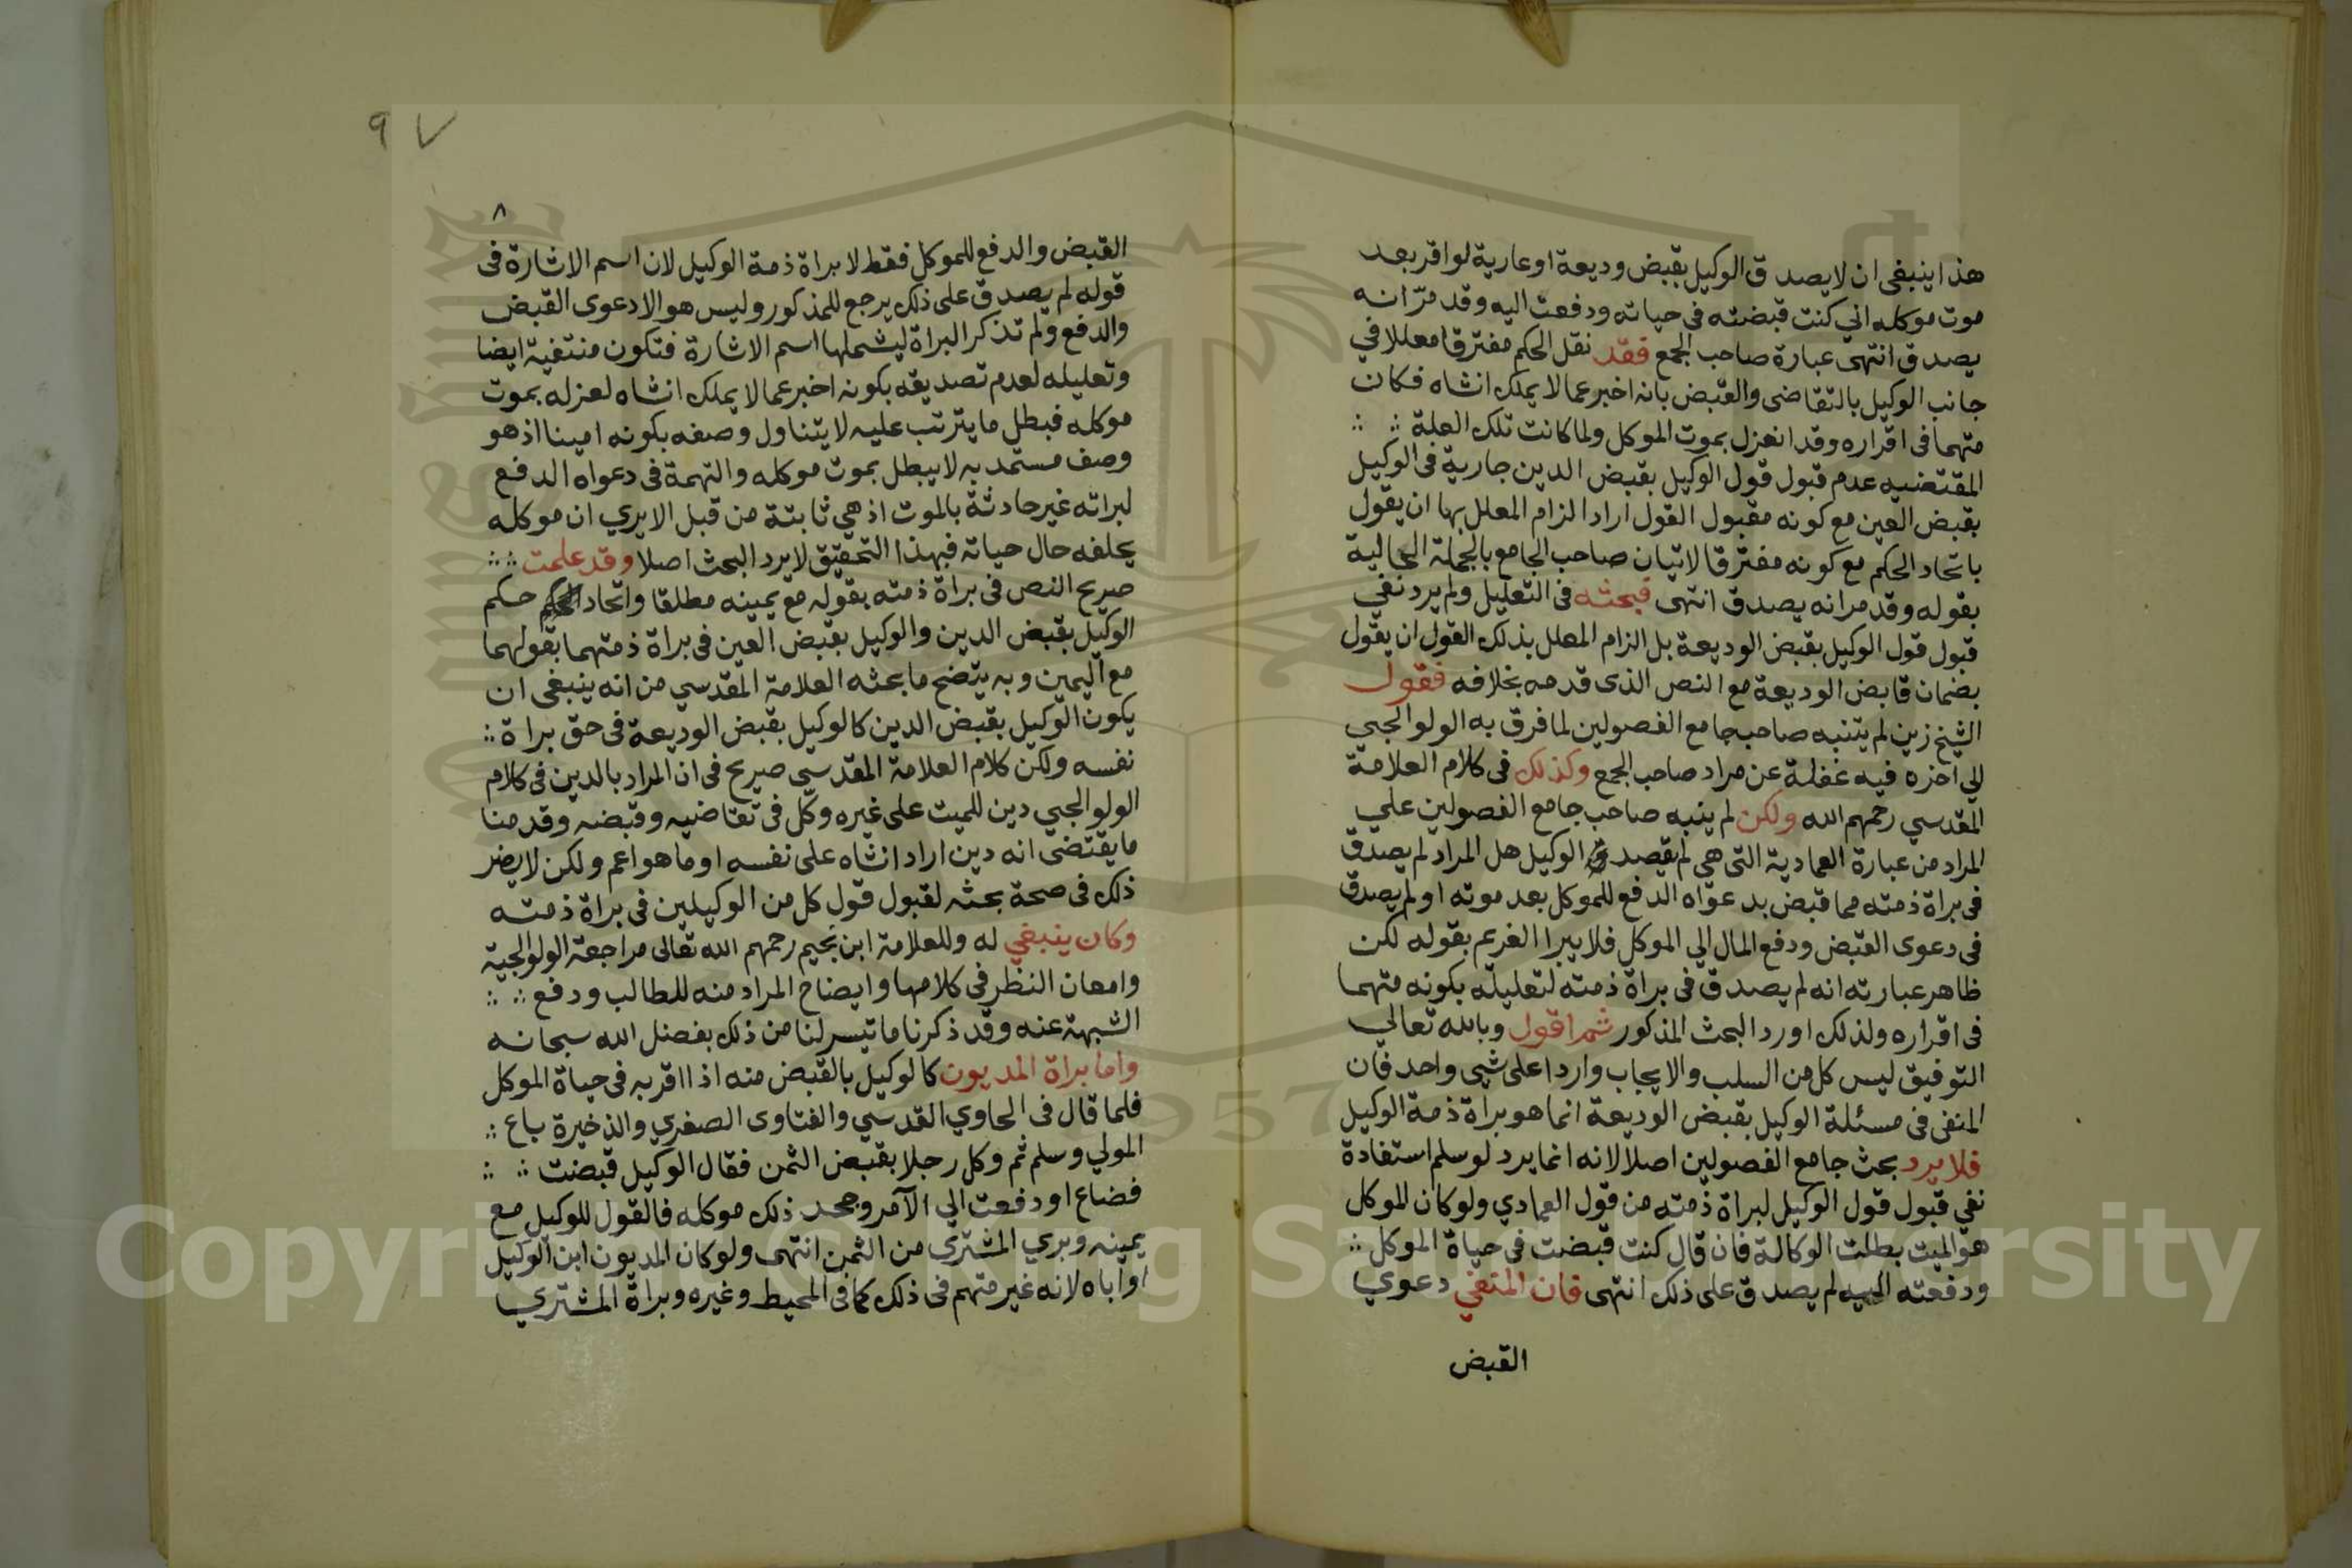 هذا ينبغى ان لا يصدق الوكيل بقبض وديعة او عارية لو اقر بعد
موت موكله اني كنت قبضته فى حياته ودفعت اليه وقد مرّ انه
يصدق انتهى عبارة صاحب الجمع فقد نقل الحكم مفترقا معللا في
جانب الوكيل بالتقاضى والقبض بانه اخبر عما لا يملك انشاه فكان
متهما فى اقراره وقد انعزل بموت الموكل ولما كانت تلك العلة
المقتضيه عدم قبول قول الوكيل بقبض الدين جارية فى الوكيل
بقبض العين مع كونه مقبول القول اراد الزام المعلل بها ان يقول
باتحاد الحكم مع كونه مفترقا لاتيان صاحب الجامع بالجملة الحالية
بقوله وقد مر انه يصدق انتهى فبحثه فى التعليل ولم يرد نفي
قبول قول الوكيل بقبض الوديعة بل الزام المعلل بذلك القول ان يقول
بضمان قابض الوديعة مع النص الذى قدمه بخلافه فقول
الشيخ زين لم يتنبه صاحب جامع الفصولين لما فرق به الولوالجي
الي اخره فيه غفلة عن مراد صاحب الجمع وكذلك فى كلام العلامة
المقدسي رحمهم الله ولكن لم ينبه صاحب جامع الفصولين علي
المراد من عبارة العمادية التى هى لم يصدق الوكيل هل المراد لم يصدق
فى براة ذمته مما قبض بدعواه الدفع للموكل بعد موته او لم يصدق
فى دعوى القبض ودفع المال الي الموكل فلا يبرا الغريم بقوله لكن
ظاهر عبارته انه لم يصدق فى براة ذمته لتعليله بكونه متهما
فى اقراره ولذلك اورد البحث المذكور ثم اقول وبالله تعالي
التوفيق ليس كل من السلب والايجاب واردا على شيى واحد فان
المنفى فى مسئلة الوكيل بقبض الوديعة انما هو براة ذمة الوكيل
فلا يرد بحث جامع الفصولين اصلا لانه انما يرد لو سلم استفادة
نفي قبول قول الوكيل لبراة ذمته من قول العمادي ولو كان الموكل
هو الميت بطلت الوكالة فان قال كنت قبضت فى حياة الموكل
ودفعته اليه لم يصدق على ذلك انتهى فان المنفي دعوي
القبض
٩٧
٨
القبض والدفع للموكل فقط لا براة ذمة الوكيل لان اسم الاشارة فى
قوله لم يصدق على ذلك يرجع للمذكور وليس هو الا دعوى القبض
والدفع ولم تذكر البراة ليشملها اسم الاشارة فتكون منتفية ايضا
وتعليله لعدم تصديقه بكونه اخبر عما لا يملك انشاه لعزله بموت
موكله فبطل ما يترتب عليه لا يتناول وصفه بكونه امينا اذ هو
وصف مستمد به لا يبطل بموت موكله والتهمة فى دعواه الدفع
لبراته غير حادثة بالموت اذ هي ثابتة من قبل الا يري ان موكله
يحلفه حال حياته فبهذا التحقيق لا يرد البحث اصلا وقد علمت
صريح النص فى براة ذمته بقوله مع يمينه مطلقا واتحاد حكم
الوكيل بقبض الدين والوكيل بقبض العين فى براة ذمتهما بقولهما
مع اليمين وبه يتضح ما بحثه العلامة المقدسي من انه ينبغى ان
يكون الوكيل بقبض الدين كالوكيل بقبض الوديعة فى حق براة
نفسه ولكن كلام العلامة المقدسي صريح فى ان المراد بالدين فى كلام
الولوالجي دين للميت على غيره وكّل فى تقاضيه وقبضه وقدمنا
ما يقتضى انه دين اراد انشاه على نفسه او ما هو اعم ولكن لا يضر
ذلك فى صحة بحثه لقبول قول كل من الوكيلين فى براة ذمته
وكان ينبغي له وللعلامة ابن نجيم رحمهم الله تعالى مراجعة الولوالجية
وامعان النظر فى كلامها وايضاح المراد منه للطالب ودفع
الشبهة عنه وقد ذكرنا ما تيسر لنا من ذلك بفضل الله سبحانه
واما براة المديون كالوكيل بالقبض منه اذا اقر به فى حياة الموكل
فلما قال فى الحاوي القدسي والفتاوى الصغري والذخيرة باع
المولي وسلم ثم وكل رجلا بقبض الثمن فقال الوكيل قبضت
فضاع او دفعت الي الآمر وجحد ذلك موكله فالقول للوكيل مع
يمينه وبري المشتري من الثمن انتهى ولو كان المديون ابن الوكيل
او اباه لانه غير متهم فى ذلك كما فى المحيط وغيره وبراة المشتري
Copyright © King Saud University
1957